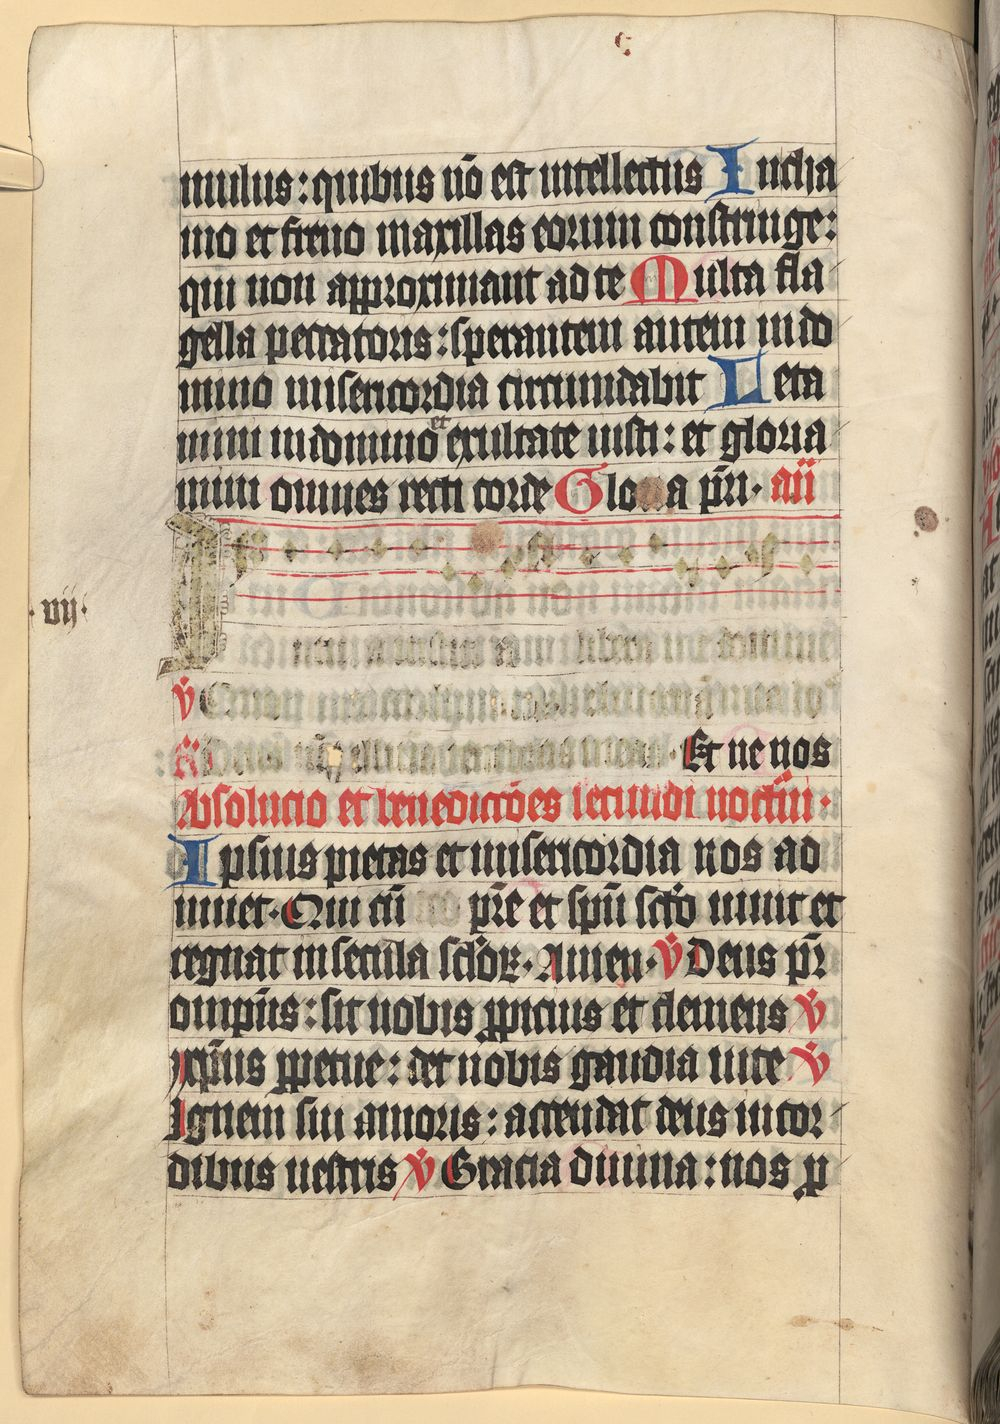 mulus : quibus nō est intellectus In cha
mo et freno maxillas eorum constringe :
qui non approximant ad te Multa fla
gella peccatoris : sperantem autem in do
mino misericordia circumdabit Leta
mini in domino et exultate iusti : et gloria
mini omnes recti corde Gloria pr̄i · an̄
· vij ·
libera me domine
v̄
Et ne nos
Absolucio et benedictōes secundi nocturni ·
Ipsius pietas et misericordia nos ad
iuuet · Qui cū pr̄e et spū scto viuit et
regnat in secula sclōꝝ · Amen · v̄ Deus pr̄
omp̄ns : sit nobis ꝓpicius et clemens v̄
xp̄us ꝑpetue : det nobis gaudia vite v̄
Ignem sui amoris : accendat deus in cor
dibus nestris v̄ Gracia diuina : nos ꝑ